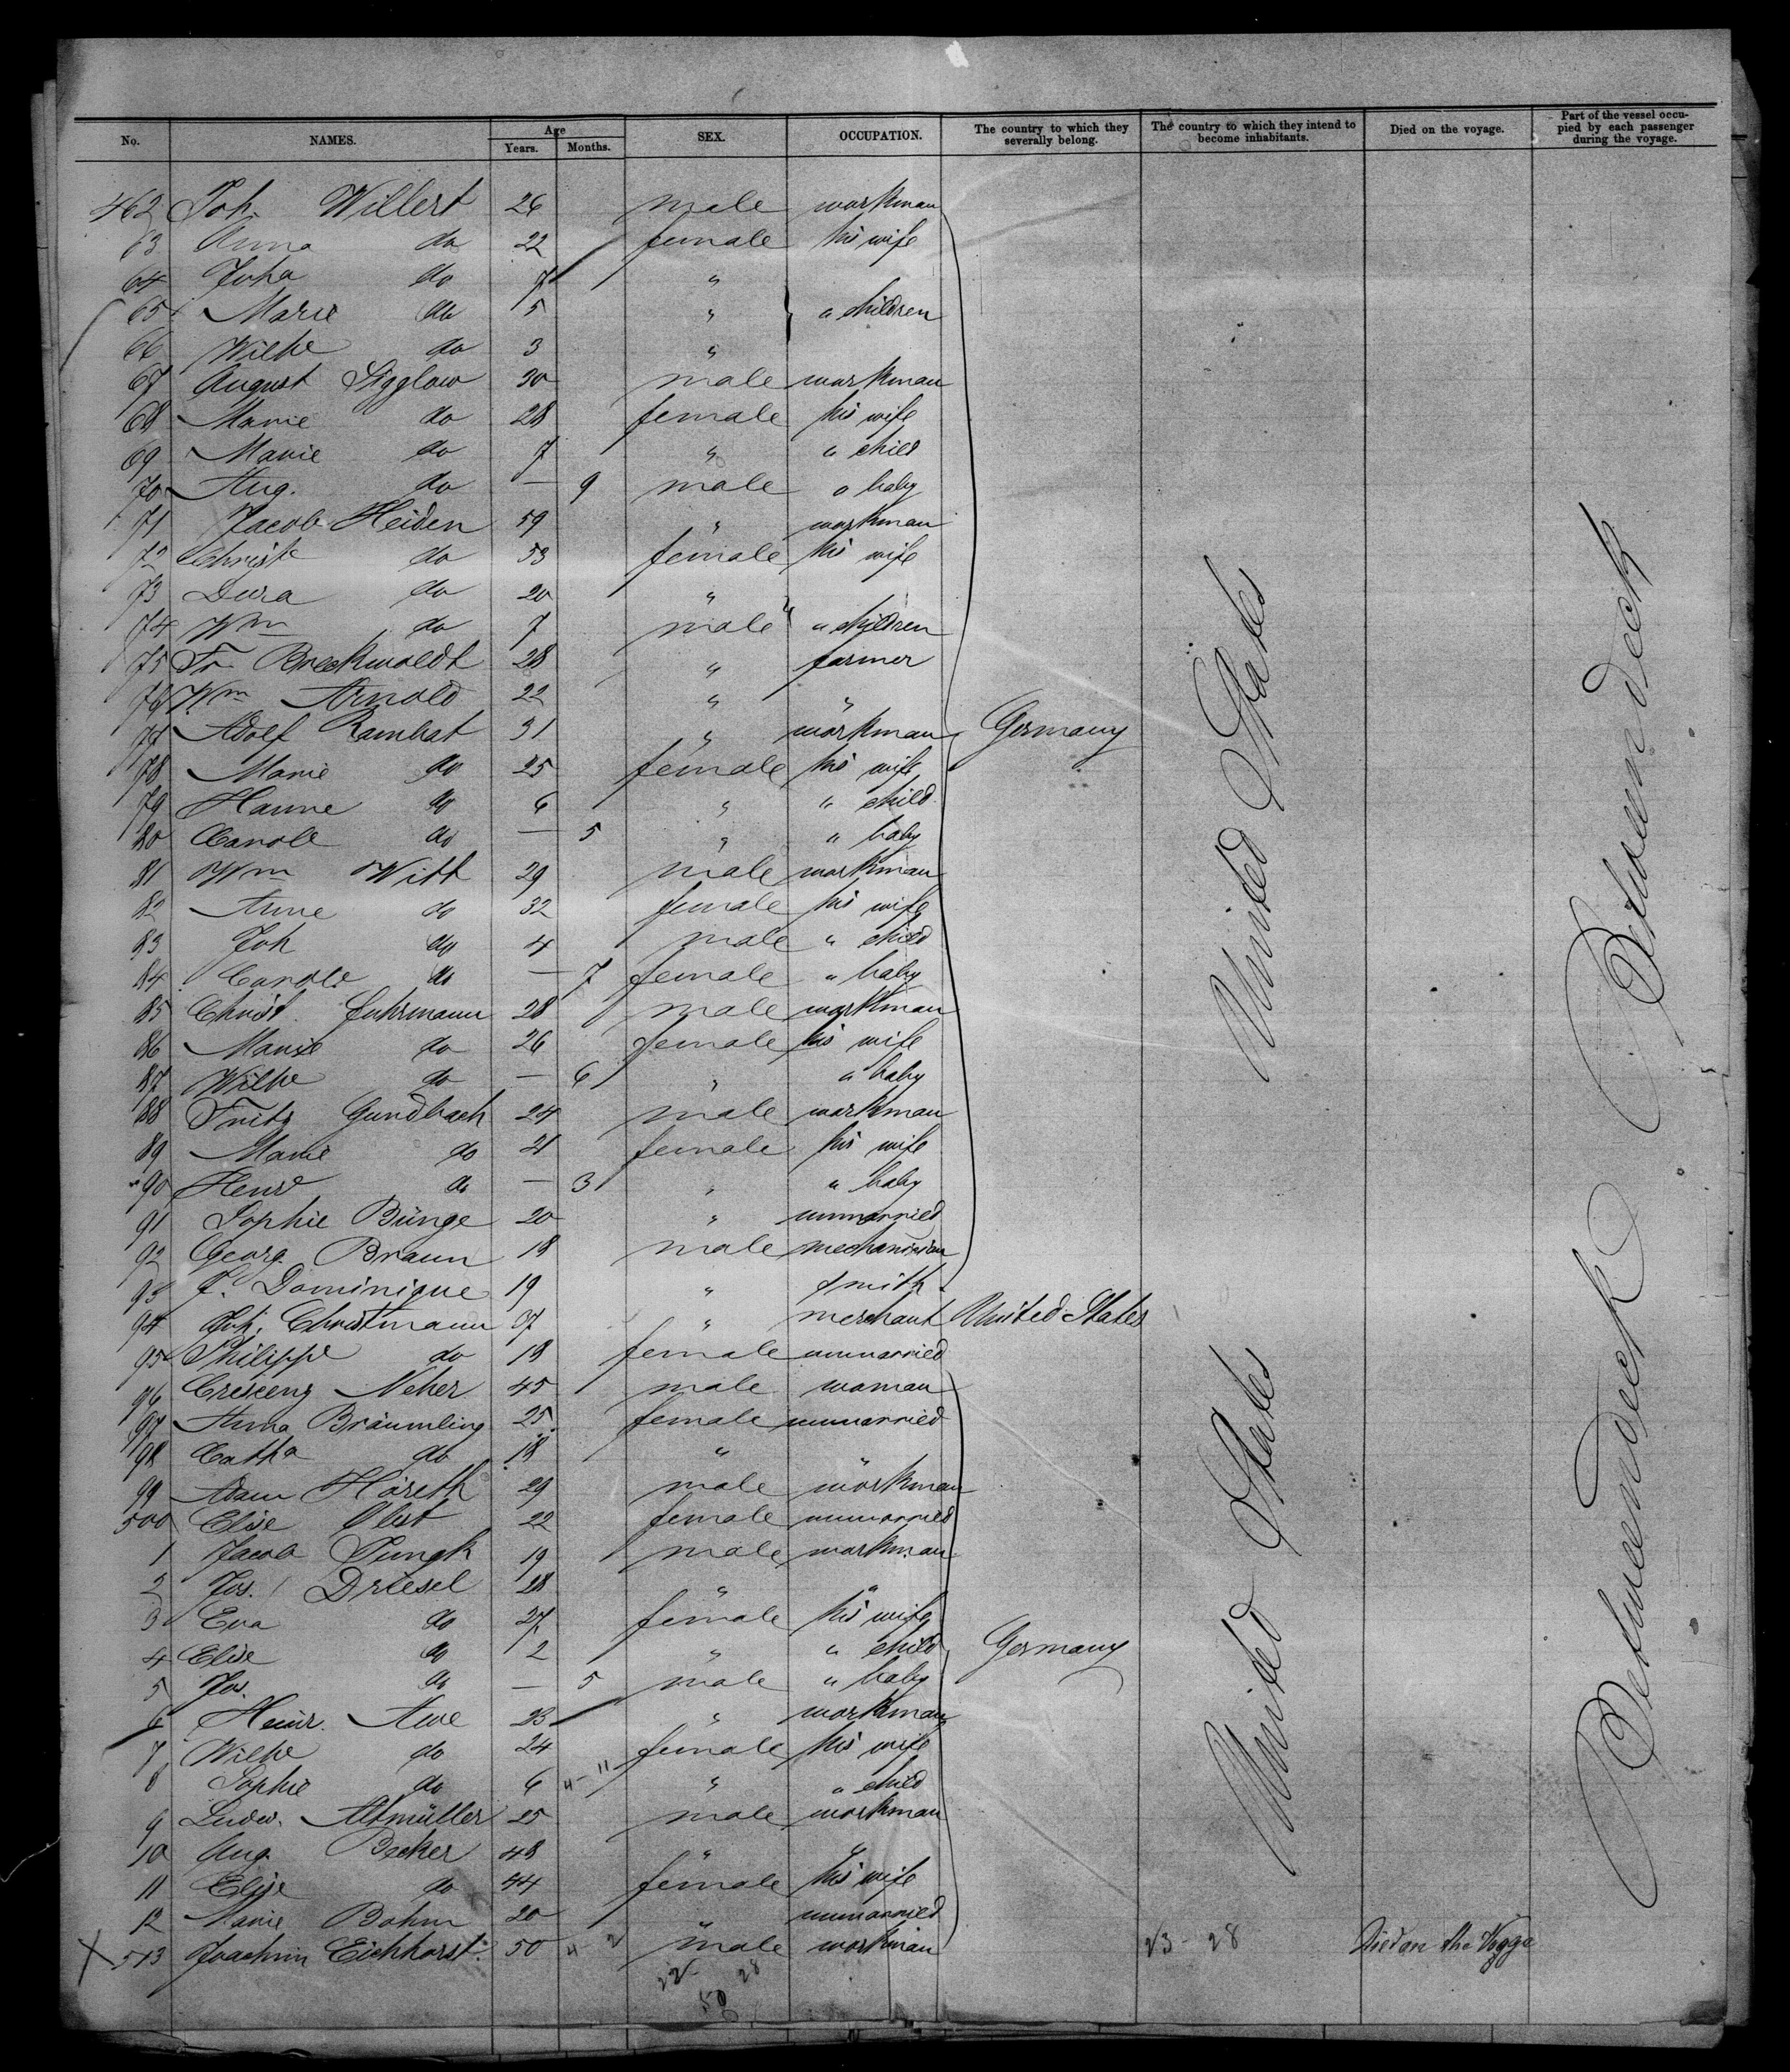 No. NAMES. Age Years. Months. SEX. OCCUPATION. The country to which they severally belong. The country to which they intend to become inhabitants. Died on the voyage. Part of the vessel occupied by each passenger during the voyage.
462 Joh. Willert 26 male workman
63 Anna do 22 female his wife
64 Joha do 7 "
65 Marie do 5 " " children
66 Wilhe do 3 "
67 August Sigglow 30 male workman
68 Marie do 28 female his wife
69 Marie do 7 " " child
70 Aug. do — 9 male " baby
71 Jacob Heiden 59 " workman
72 Christe do 53 female his wife
73 Dora do 20 "
74 Wm do 7 male " children
75 Fr. Breckwoldt 28 " farmer
76 Wm Arnold 22 " "
77 Adolf Rambat 31 " workman Germany
78 Marie do 25 female his wife
79 Hanne do 6 " " child
80 Carole do — 5 " " baby
81 Wm Witt 29 male workman
82 Anne do 32 female his wife
83 Joh do 4 male " child
84 Carole do — 7 female " baby
85 Christ. Fuhrmann 28 male workman
86 Marie do 26 female his wife
87 Wilhe do — 6 " " baby
88 Fritz Gundlach 24 male workman
89 Marie do 21 female his wife
90 do — 3 " " baby
91 Sophie Bünge 20 " unmarried
92 Georg Braun 18 male mechanician
93 Dominique 19 " smith
94 Joh. Christmann " merchant United States
95 Philippe do 18 female unmarried
96 Crescenz Neher 45 male woman
97 Anna Bräumling 25 female unmarried
98 Catha do 18 " "
99 Adam Höreth 29 male workman
500 Elise 22 female unmarried
1 Jacob Jungk 19 male workman
2 Jos. Driesel 28 " "
3 Eva do 27 female his wife
4 Elise do 2 " " child Germany
5 Jos. do — 5 male " baby
6 Heinr. Awe 23 " workman
7 Wilhe do 24 female his wife
8 Sophie do 6 4-11 " " child
9 Ludw. Altmüller 25 male workman
10 Aug. Becker 48 " "
11 Elise do 44 female his wife
12 Marie Bohm 20 " unmarried
X 513 Joachim Eichhorst 50 4 2 male workman 23-28 Died on the
22 28
50
United States
United States
Betweendeck
Betweendeck